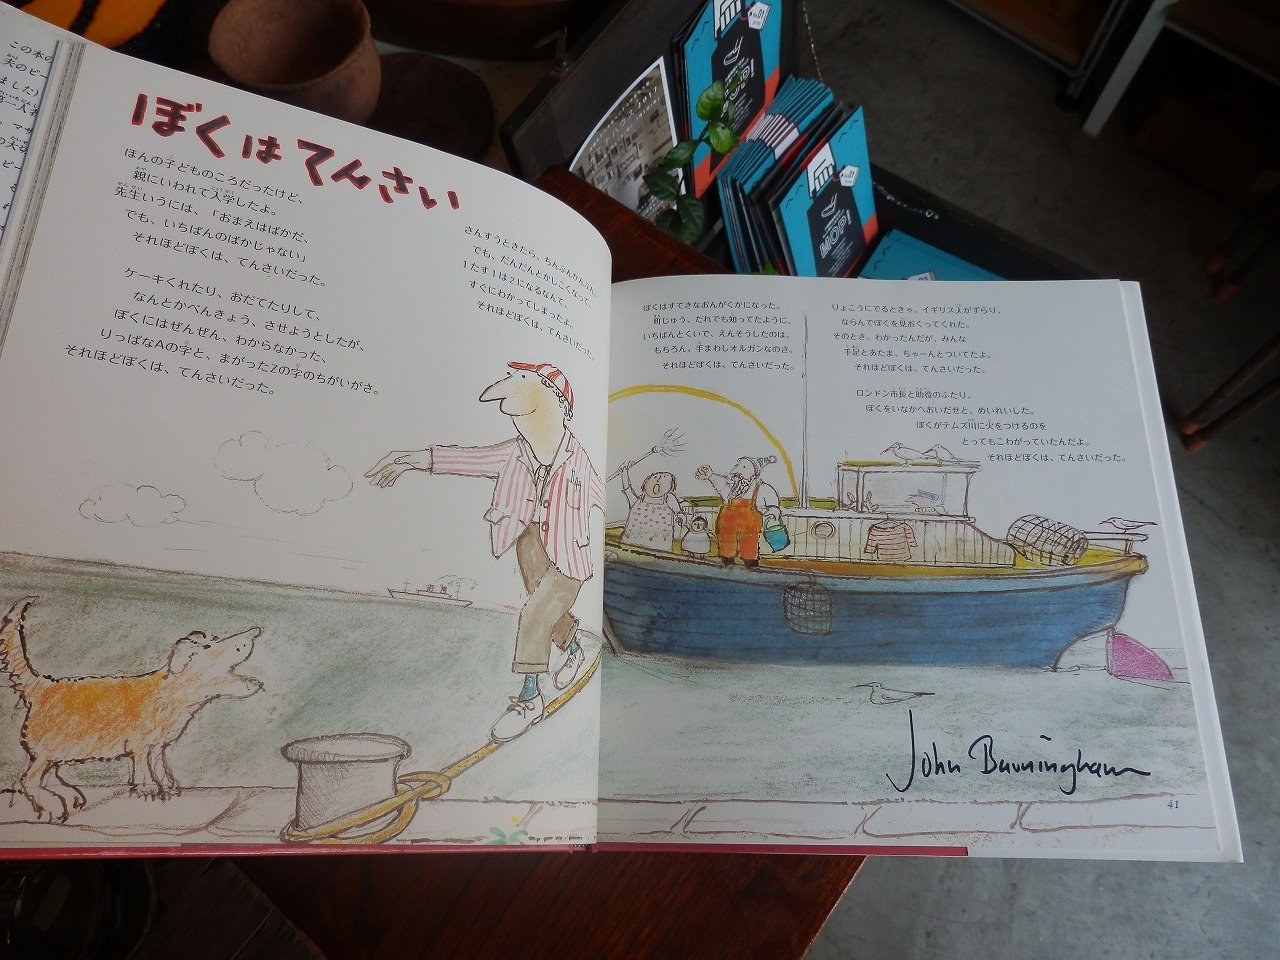 ぼくはてんさい
ほんの子どものころだったけど、
親にいわれて入学したよ。
先生いうには、「おまえはばかだ、
でも、いちばんのばかじゃない」
それほどぼくは、てんさいだった。
ケーキくれたり、おだてたりして、
なんとかべんきょう、させようとしたが、
ぼくにはぜんぜん、わからなかった、
りっぱなAの字と、まがったZの字のちがいがさ。
それほどぼくは、てんさいだった。
さんすうときたら、ちんぷんかんぷん、
でも、だんだんとかしこくなって、
1たす1は2になるなんて、
すぐにわかってしまったよ。
それほどぼくは、てんさいだった。
ぼくはすてきなおんがくかになった。
町じゅう、だれでも知ってたように、
いちばんとくいで、えんそうしたのは、
もちろん、手まわしオルガンなのさ。
それほどぼくは、てんさいだった。
りょこうにでるときゃ、イギリス人がずらり、
ならんでぼくを見おくってくれた。
そのとき、わかったんだが、みんな
手足とあたま、ちゃーんとついてたよ。
それほどぼくは、てんさいだった。
ロンドン市長と助役のふたり、
ぼくをいなかへおいだせと、めいれいした。
ぼくがテムズ川に火をつけるのを
とってもこわがっていたんだよ。
それほどぼくは、てんさいだった。
John Burningham
41
この本の
夫のピー
ました
MOP!